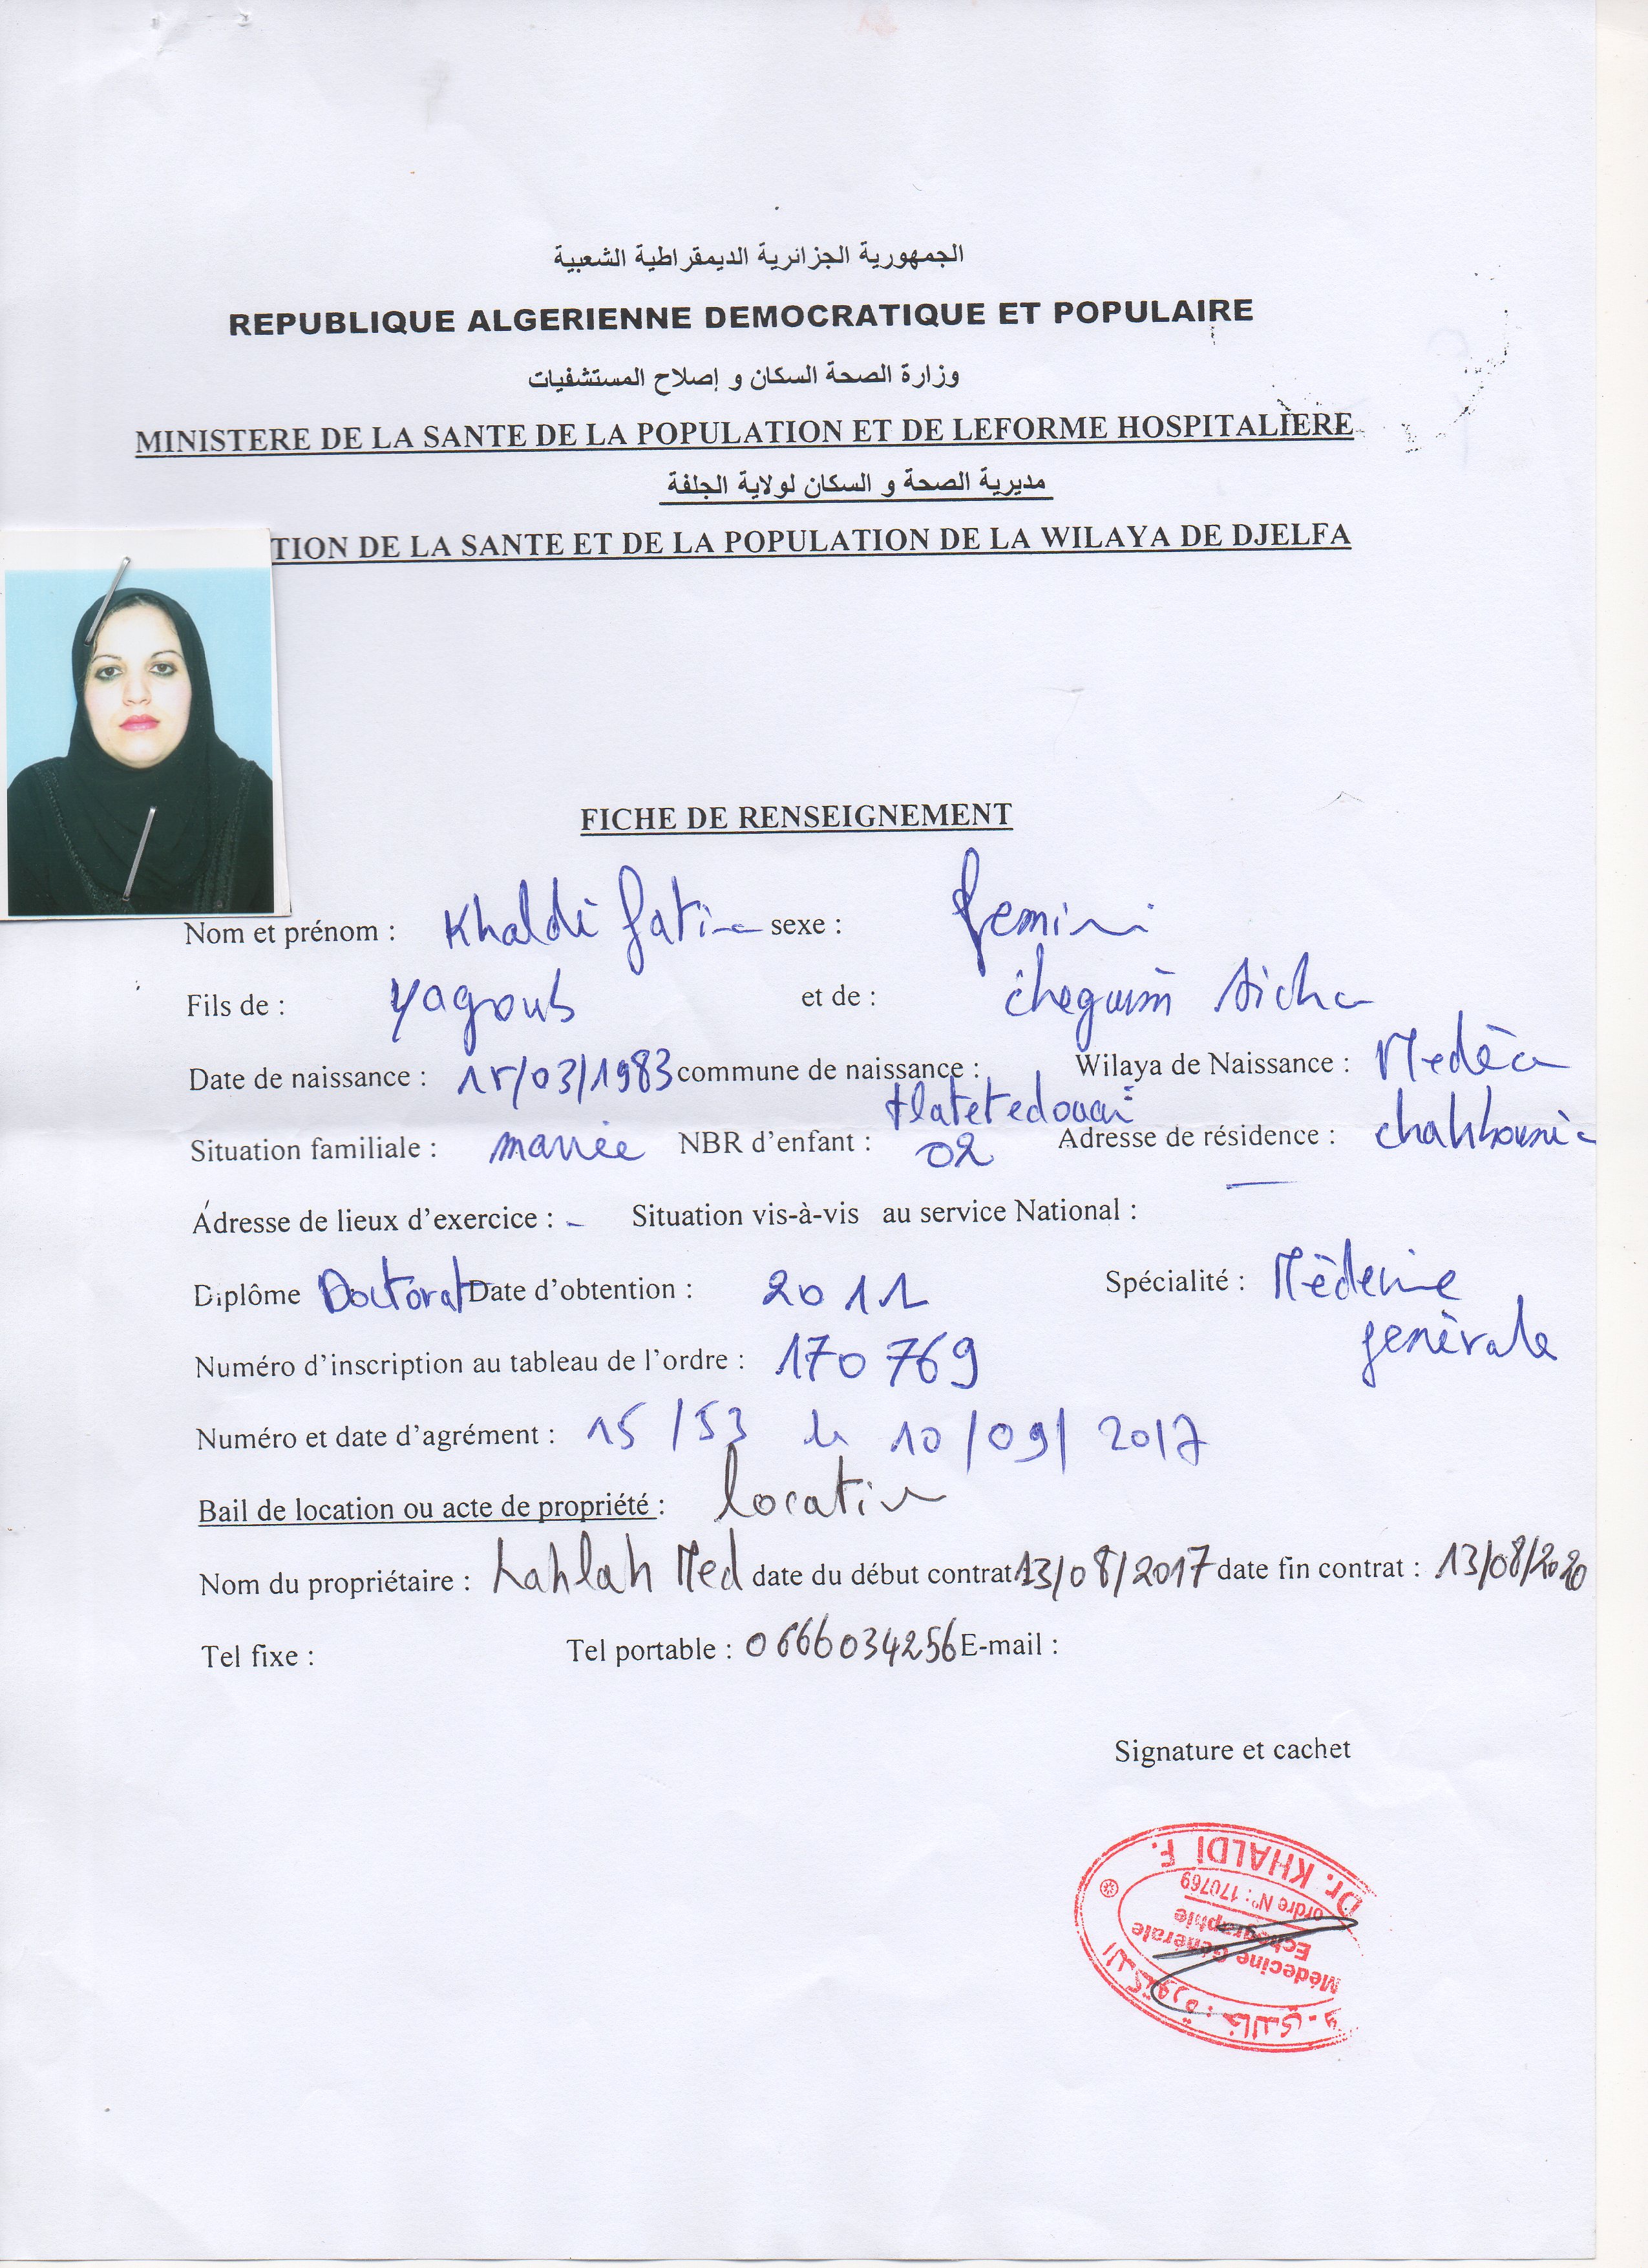 الجمهورية الجزائرية الديمقراطية الشعبية
REPUBLIQUE ALGERIENNE DEMOCRATIQUE ET POPULAIRE
وزارة الصحة السكان و إصلاح المستشفيات
MINISTERE DE LA SANTE DE LA POPULATION ET DE LEFORME HOSPITALIERE
مديرية الصحة و السكان لولاية الجلفة
TION DE LA SANTE ET DE LA POPULATION DE LA WILAYA DE DJELFA
FICHE DE RENSEIGNEMENT
Nom et prénom : Khaldi sexe : femini
Fils de : Yagoub et de : Aicha
Date de naissance : 15/03/1983 commune de naissance : Wilaya de Naissance : Medèa
Situation familiale : mariée NBR d'enfant : 02 Adresse de résidence :
Adresse de lieux d'exercice : - Situation vis-à-vis au service National : —
Diplôme Doctorat Date d'obtention : 2011 Spécialité : Mèdecine
gènèrale
Numéro d'inscription au tableau de l'ordre : 170769
Numéro et date d'agrément : 15/53 le 10/09/2017
Bail de location ou acte de propriété : location
Nom du propriétaire : Lahlah Med date du début contrat 13/08/2017 date fin contrat : 13/08/2020
Tel fixe : Tel portable : 0666034256 E-mail :
Signature et cachet
Dr. KHALDI F.
ordre N° : 170769
Echographie
Médecine Générale
الدكتورة : خالدي . ف